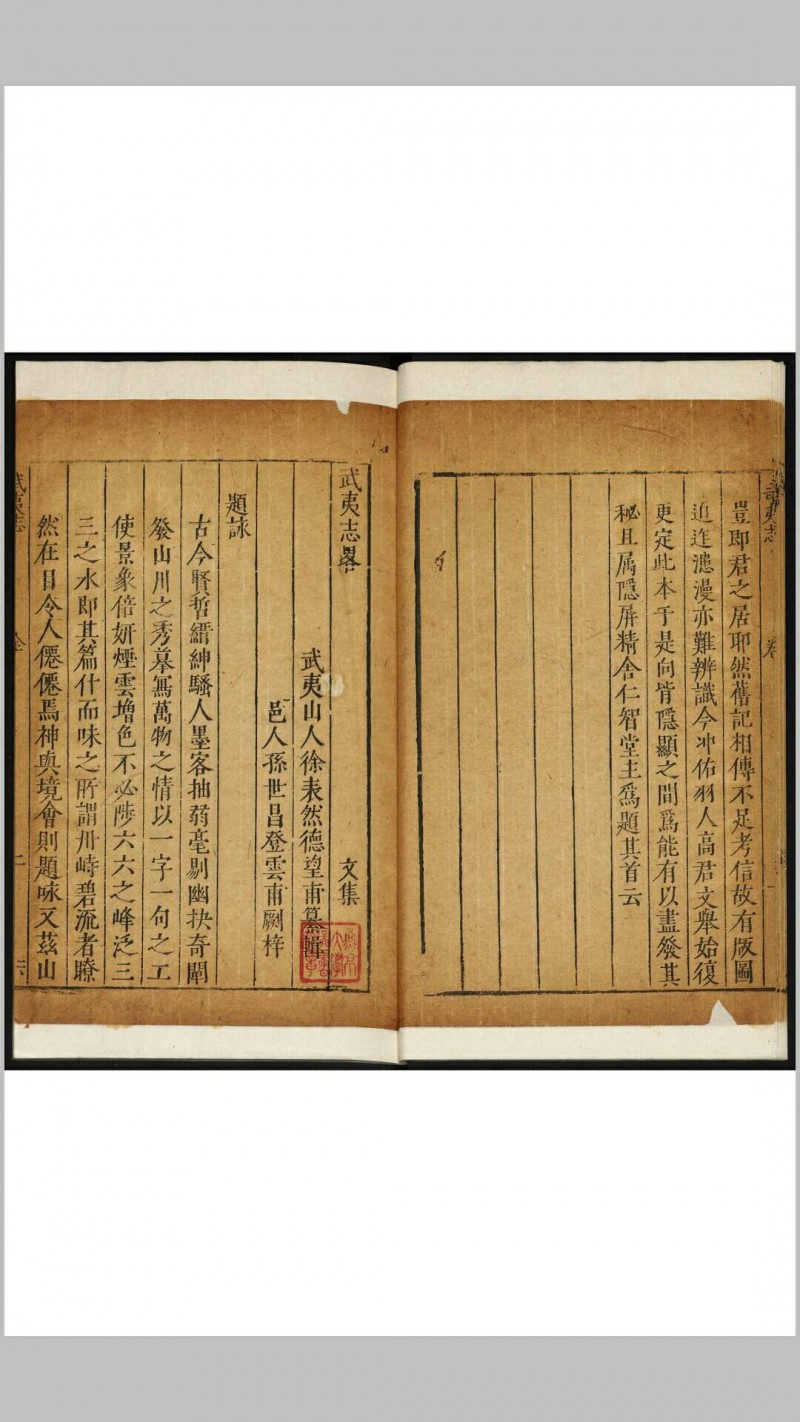 武夷志
卷
豈即君之居耶然舊記相傳不足考信故有版圖
迫迮漶漫亦難辨識今冲佑羽人高君文舉始復
更定此本于是向背隱顯之間爲能有以盡發其
秘且屬隱屏精舍仁智堂主爲題其首云
武夷志畧
文集
武夷山人徐表然德望甫纂輯
邑人孫世昌登雲甫劂梓
題詠
古今賢哲縉紳騷人墨客抽翡毫剔幽抉奇闡
發山川之秀摹寫萬物之情以一字一句之工
使景象倍妍煙雲增色不必陟六六之峰泛三
三之水即其篇什而味之所謂丹峙碧流者瞭
然在目令人僊僊焉神與境會則題咏又茲山
武夷志
二
六